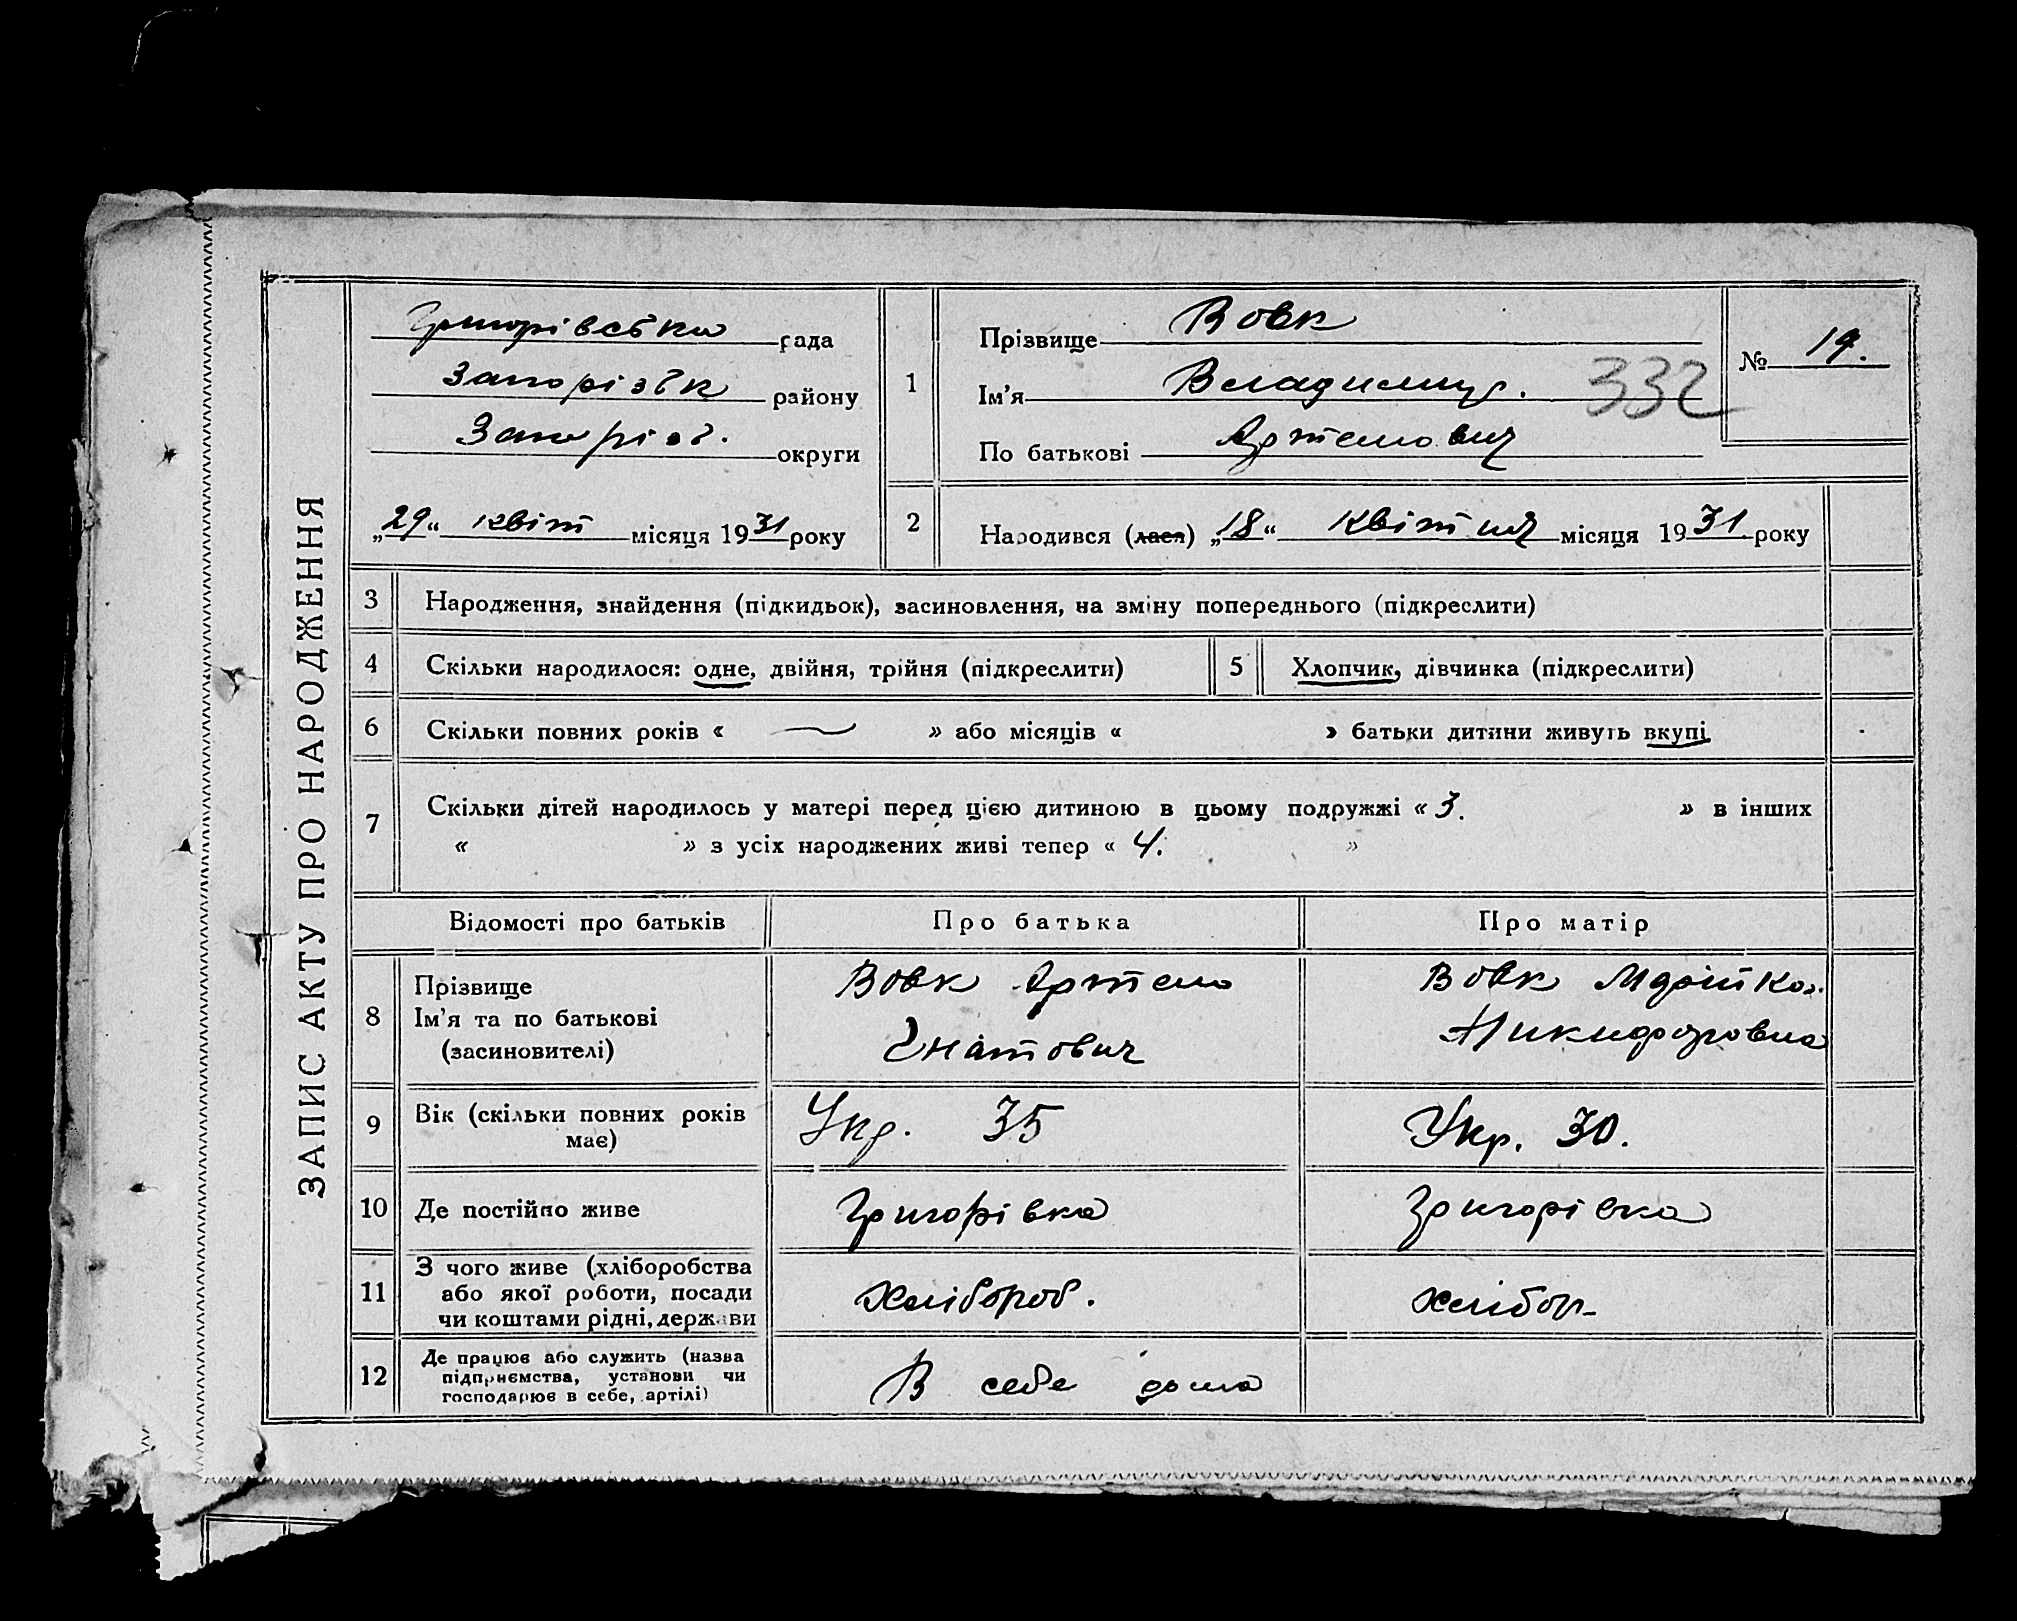 ЗАПИС АКТУ ПРО НАРОДЖЕННЯ
Григорівська рада
Запорізьк району
Запоріз. округи
„29“ квіт місяця 1931 року
1 Прізвище Вовк
Ім'я Владимир.
По батькові Артемович
№ 19.
332
2 Народився (лася) „18“ Квітня місяця 1931 року
3 Народження, знайдення (підкидьок), засиновлення, на зміну попереднього (підкреслити)
4 Скільки народилося: одне, двійня, трійня (підкреслити) 5 Хлопчик, дівчинка (підкреслити)
6 Скільки повних років « — » або місяців « » батьки дитини живуть вкупі
7 Скільки дітей народилось у матері перед цією дитиною в цьому подружжі « 3. » в інших
« » з усіх народжених живі тепер « 4. »
Відомості про батьків Про батька Про матір
8 Прізвище
Ім'я та по батькові
(засиновителі)
Вовк Артем
Гнатович
Вовк
Никифоровна
9 Вік (скільки повних років
має)
Укр. 35
Укр. 30.
10 Де постійно живе Григорівка Григорівка
11 З чого живе (хліборобства
або якої роботи, посади
чи коштами рідні, держави
Хлібороб.
хлібор-
12 Де працює або служить (назва
підприємства, установи чи
господарює в себе, артілі)
В себе дома